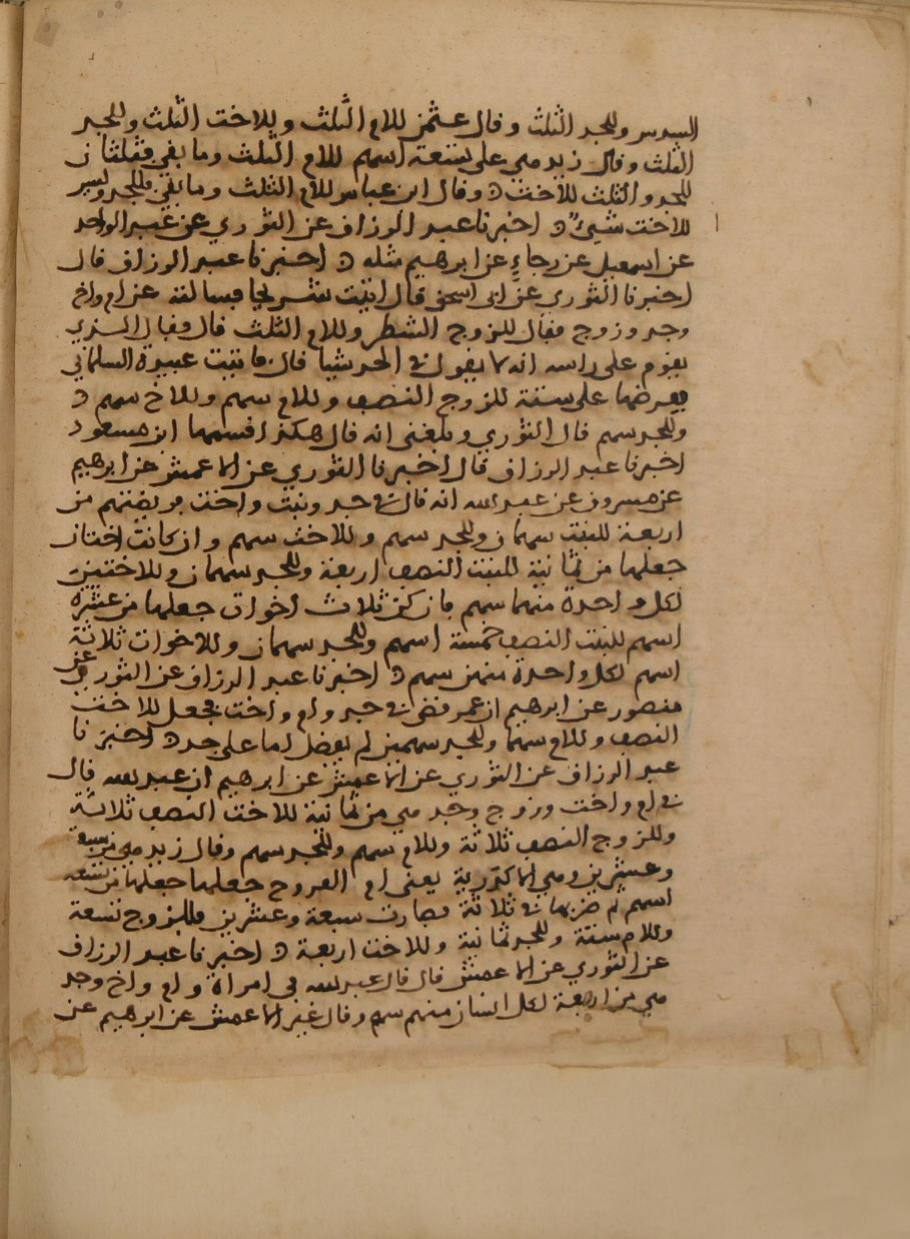 السدس وللجد الثلث وقال عثمن للام الثلث وللاخت الثلث وللجد
الثلث وقال زيد هي على تسعة اسهم للام الثلث وما بقي فثلثان
للجد والثلث للاخت ه وقال ابن عباس للام الثلث وما بقي فللجد وليس
للاخت شيء ه اخبرنا عبد الرزاق عن الثوري عن عبد الواحد
عن اسمعيل عن رجاء عن ابرهيم مثله ه اخبرنا عبد الرزاق قال
اخبرنا الثوري عن ابي اسحق قال اتيت شريحا فسالته عن ام واخ
وجد وزوج فقال للزوج الشطر وللام الثلث قال وقال الذي
يقوم على راسه انه لا يقول في الجد شيا قال فاتيت عبيدة السلماني
ففرضها على ستة للزوج النصف وللام سهم وللاخ سهم ه
وللجد سهم قال الثوري وبلغني انه قال هكذا قسمها ابن مسعود
اخبرنا عبد الرزاق قال اخبرنا الثوري عن الاعمش عن ابرهيم
عن مسروق عن عبد الله انه قال في جد وبنت واخت فريضتهم من
اربعة للبنت سهمان وللجد سهم وللاخت سهم وان كانت اختان
جعلها من ثمانية للبنت النصف اربعة وللجد سهمان وللاختين
لكل واحدة منهما سهم فان كن ثلاث اخوات جعلها من عشرة
اسهم للبنت النصف خمسة اسهم وللجد سهمان وللاخوات ثلاثة
اسهم لكل واحدة منهن سهم ه اخبرنا عبد الرزاق عن الثوري عن
منصور عن ابرهيم ان عمر قضى في جد وام واخت فجعل للاخت
النصف وللام سهما وللجد سهمين لم يفضل اما على جد ه اخبرنا
عبد الرزاق عن الثوري عن الاعمش عن ابرهيم ان عبد الله قال
في ام واخت وزوج وجد هي من ثمانية للاخت النصف ثلاثة
وللزوج النصف ثلاثة وللام سهم وللجد سهم وقال زيد هي من سبعة
وعشرين وهي الاكدرية يعني ام الفروج جعلها جعلها من تسعة
اسهم ثم ضربها في ثلاثة فصارت سبعة وعشرين فللزوج تسعة
وللام ستة وللجد ثمانية وللاخت اربعة ه اخبرنا عبد الرزاق
عن الثوري عن الاعمش قال قال عبد الله في امراة وام واخ وجد
هي من اربعة لكل انسان منهم سهم وقال غير الاعمش عن ابرهيم عن